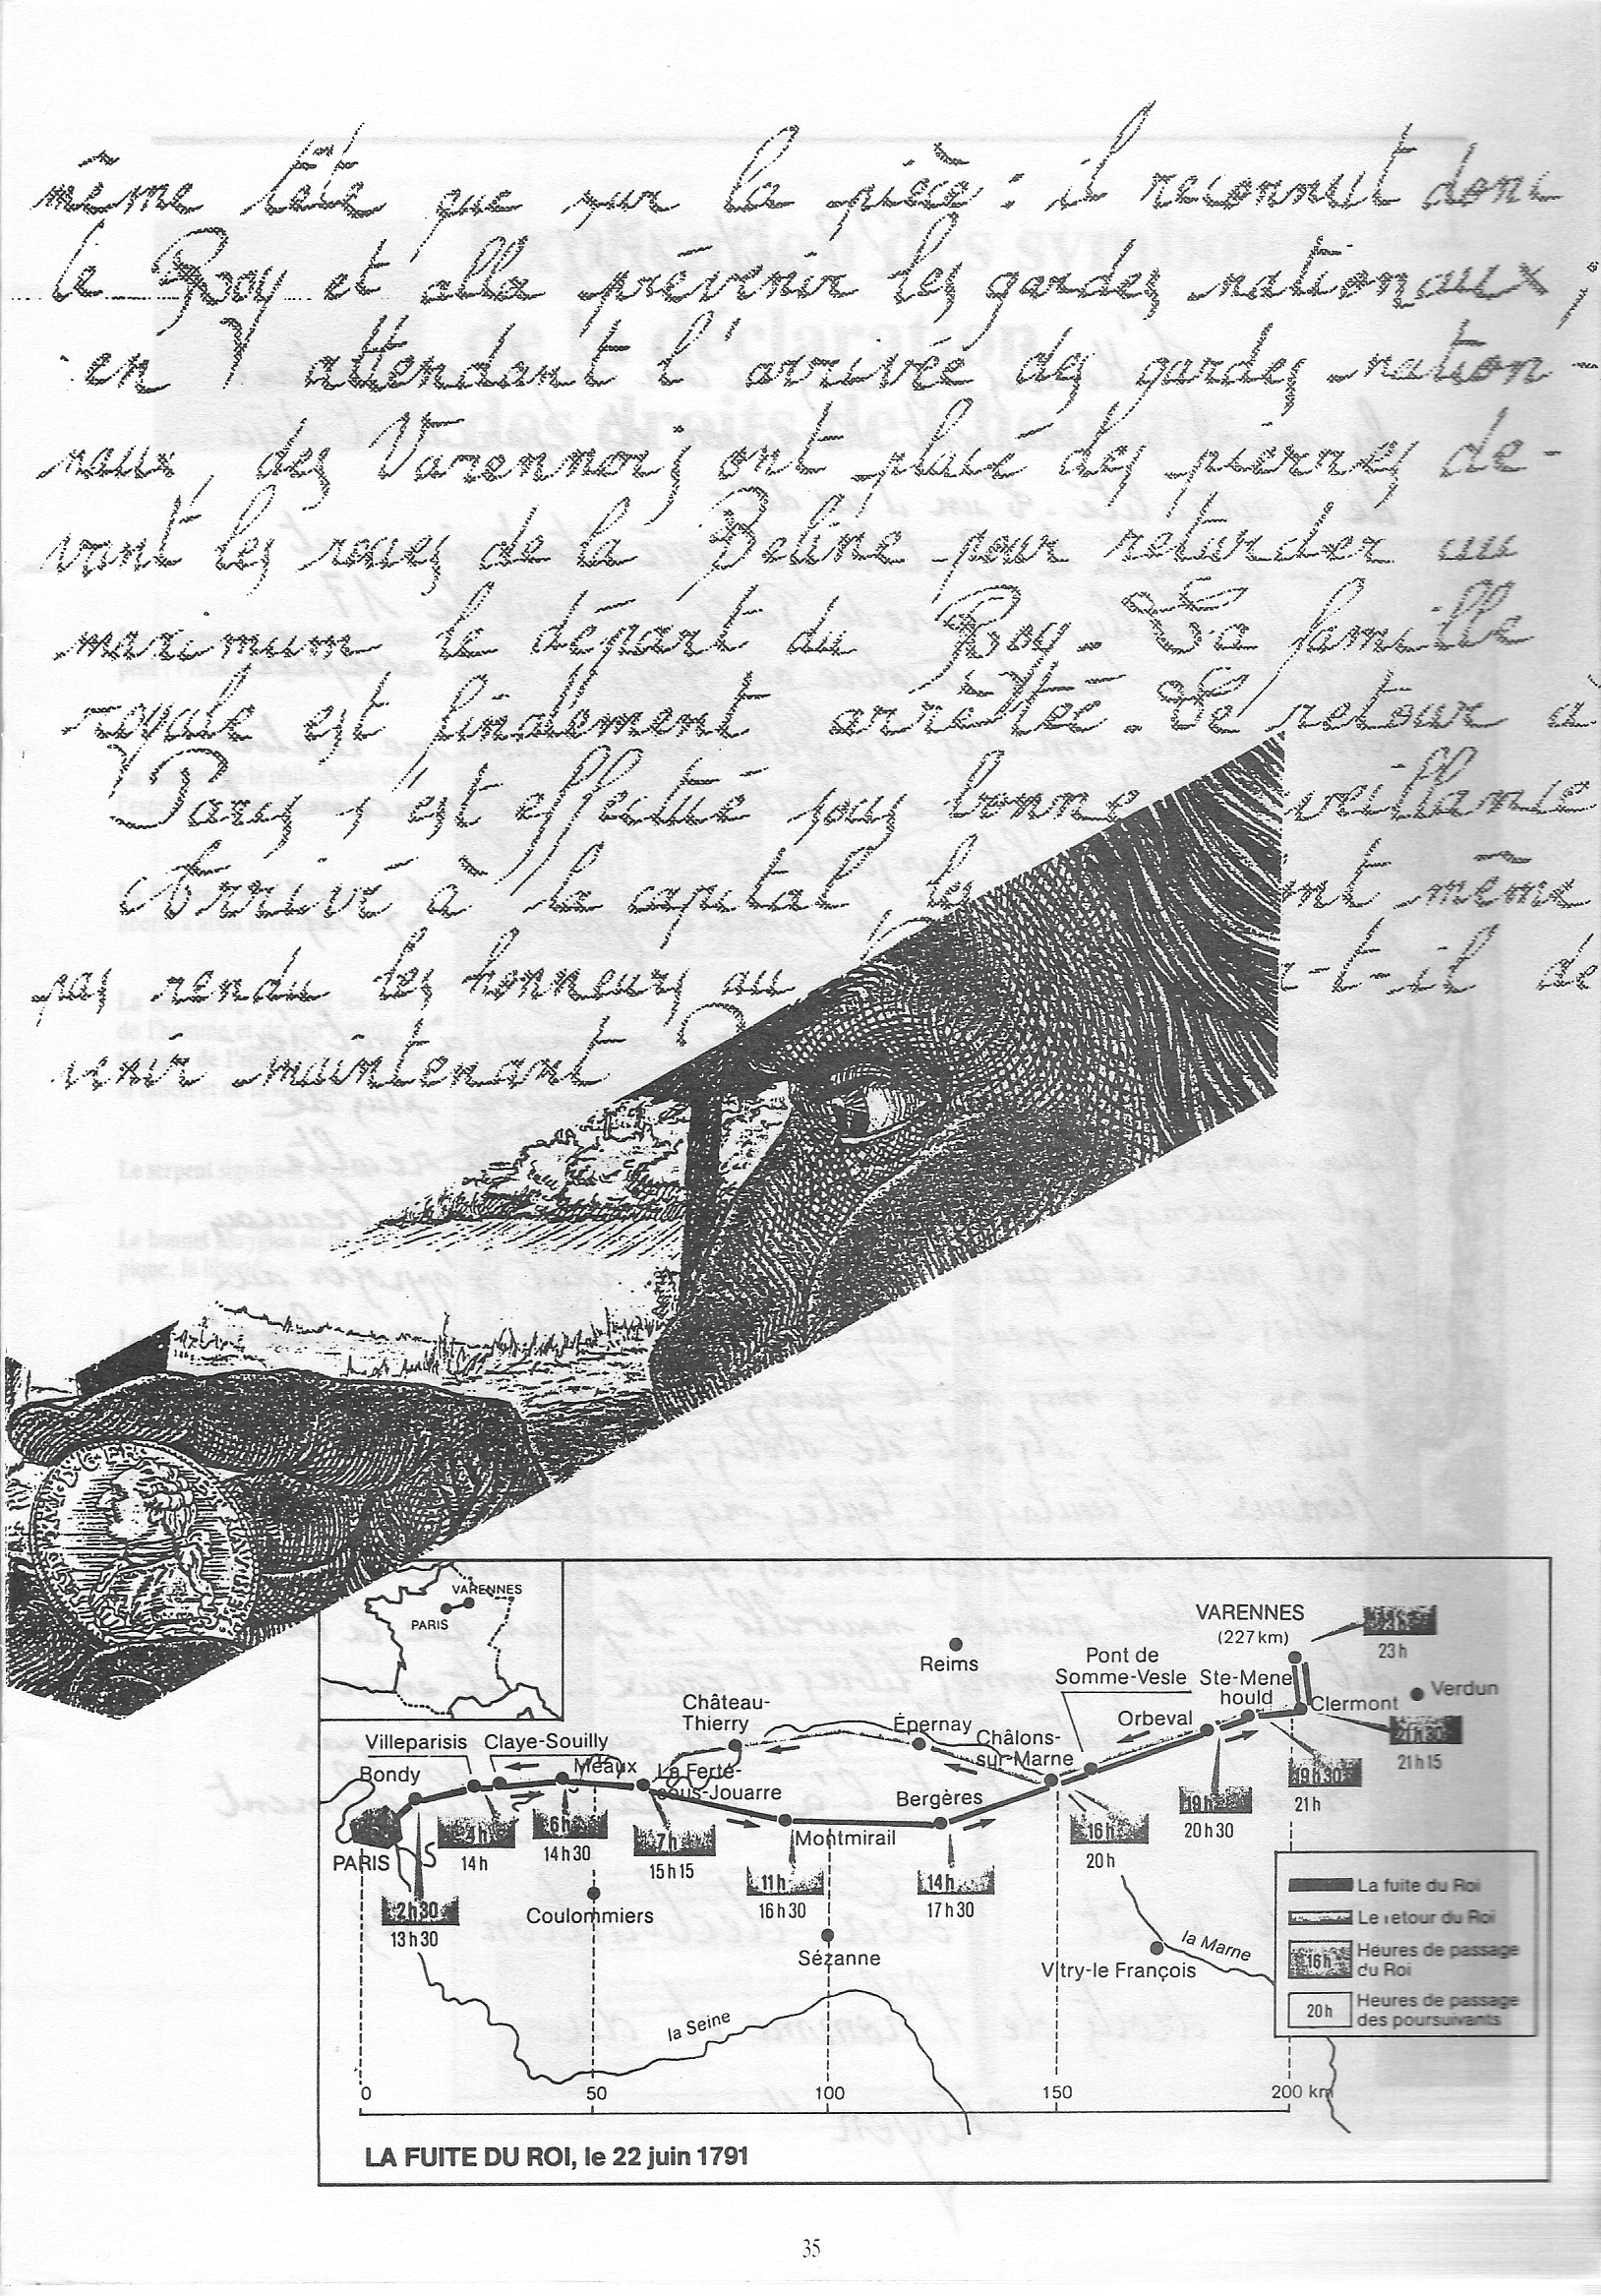 même tête que sur la pièce : il reconnut donc
le Roy et alla prévenir les gardes nationaux ;
en attendant l'arrivée des gardes nation-
naux, des Varennois ont placé des pierres de-
vant les roues de la Beline pour retarder au
maximum le départ du Roy. La famille
royale est finalement arrêtée. Le retour à
Paris s'est effectué sous bonne veillance
Arrivé à la capital, les ont même
pas rendu les honneurs au a-t-il de
venir maintenant ?
VARENNES
PARIS
VARENNES
(227 km)
23 h
23 h
Reims
Pont de
Somme-Vesle
Ste-Mene
hould
Clermont
Verdun
Château-
Thierry
Épernay
Châlons-
sur-Marne
Orbeval
21 h 30
21 h 15
Villeparisis
Claye-Souilly
Bondy
Meaux
La Ferté-
sous-Jouarre
Bergères
19 h 30
21 h
19 h
20 h 30
16 h
20 h
4 h
14 h
6 h
14 h 30
7 h
15 h 15
Montmirail
PARIS
11 h
16 h 30
14 h
17 h 30
2 h 30
13 h 30
Coulommiers
Sézanne
Vitry-le François
la Marne
la Seine
La fuite du Roi
Le retour du Roi
16 h
Heures de passage
du Roi
20 h
Heures de passage
des poursuivants
0 50 100 150 200 km
LA FUITE DU ROI, le 22 juin 1791
35